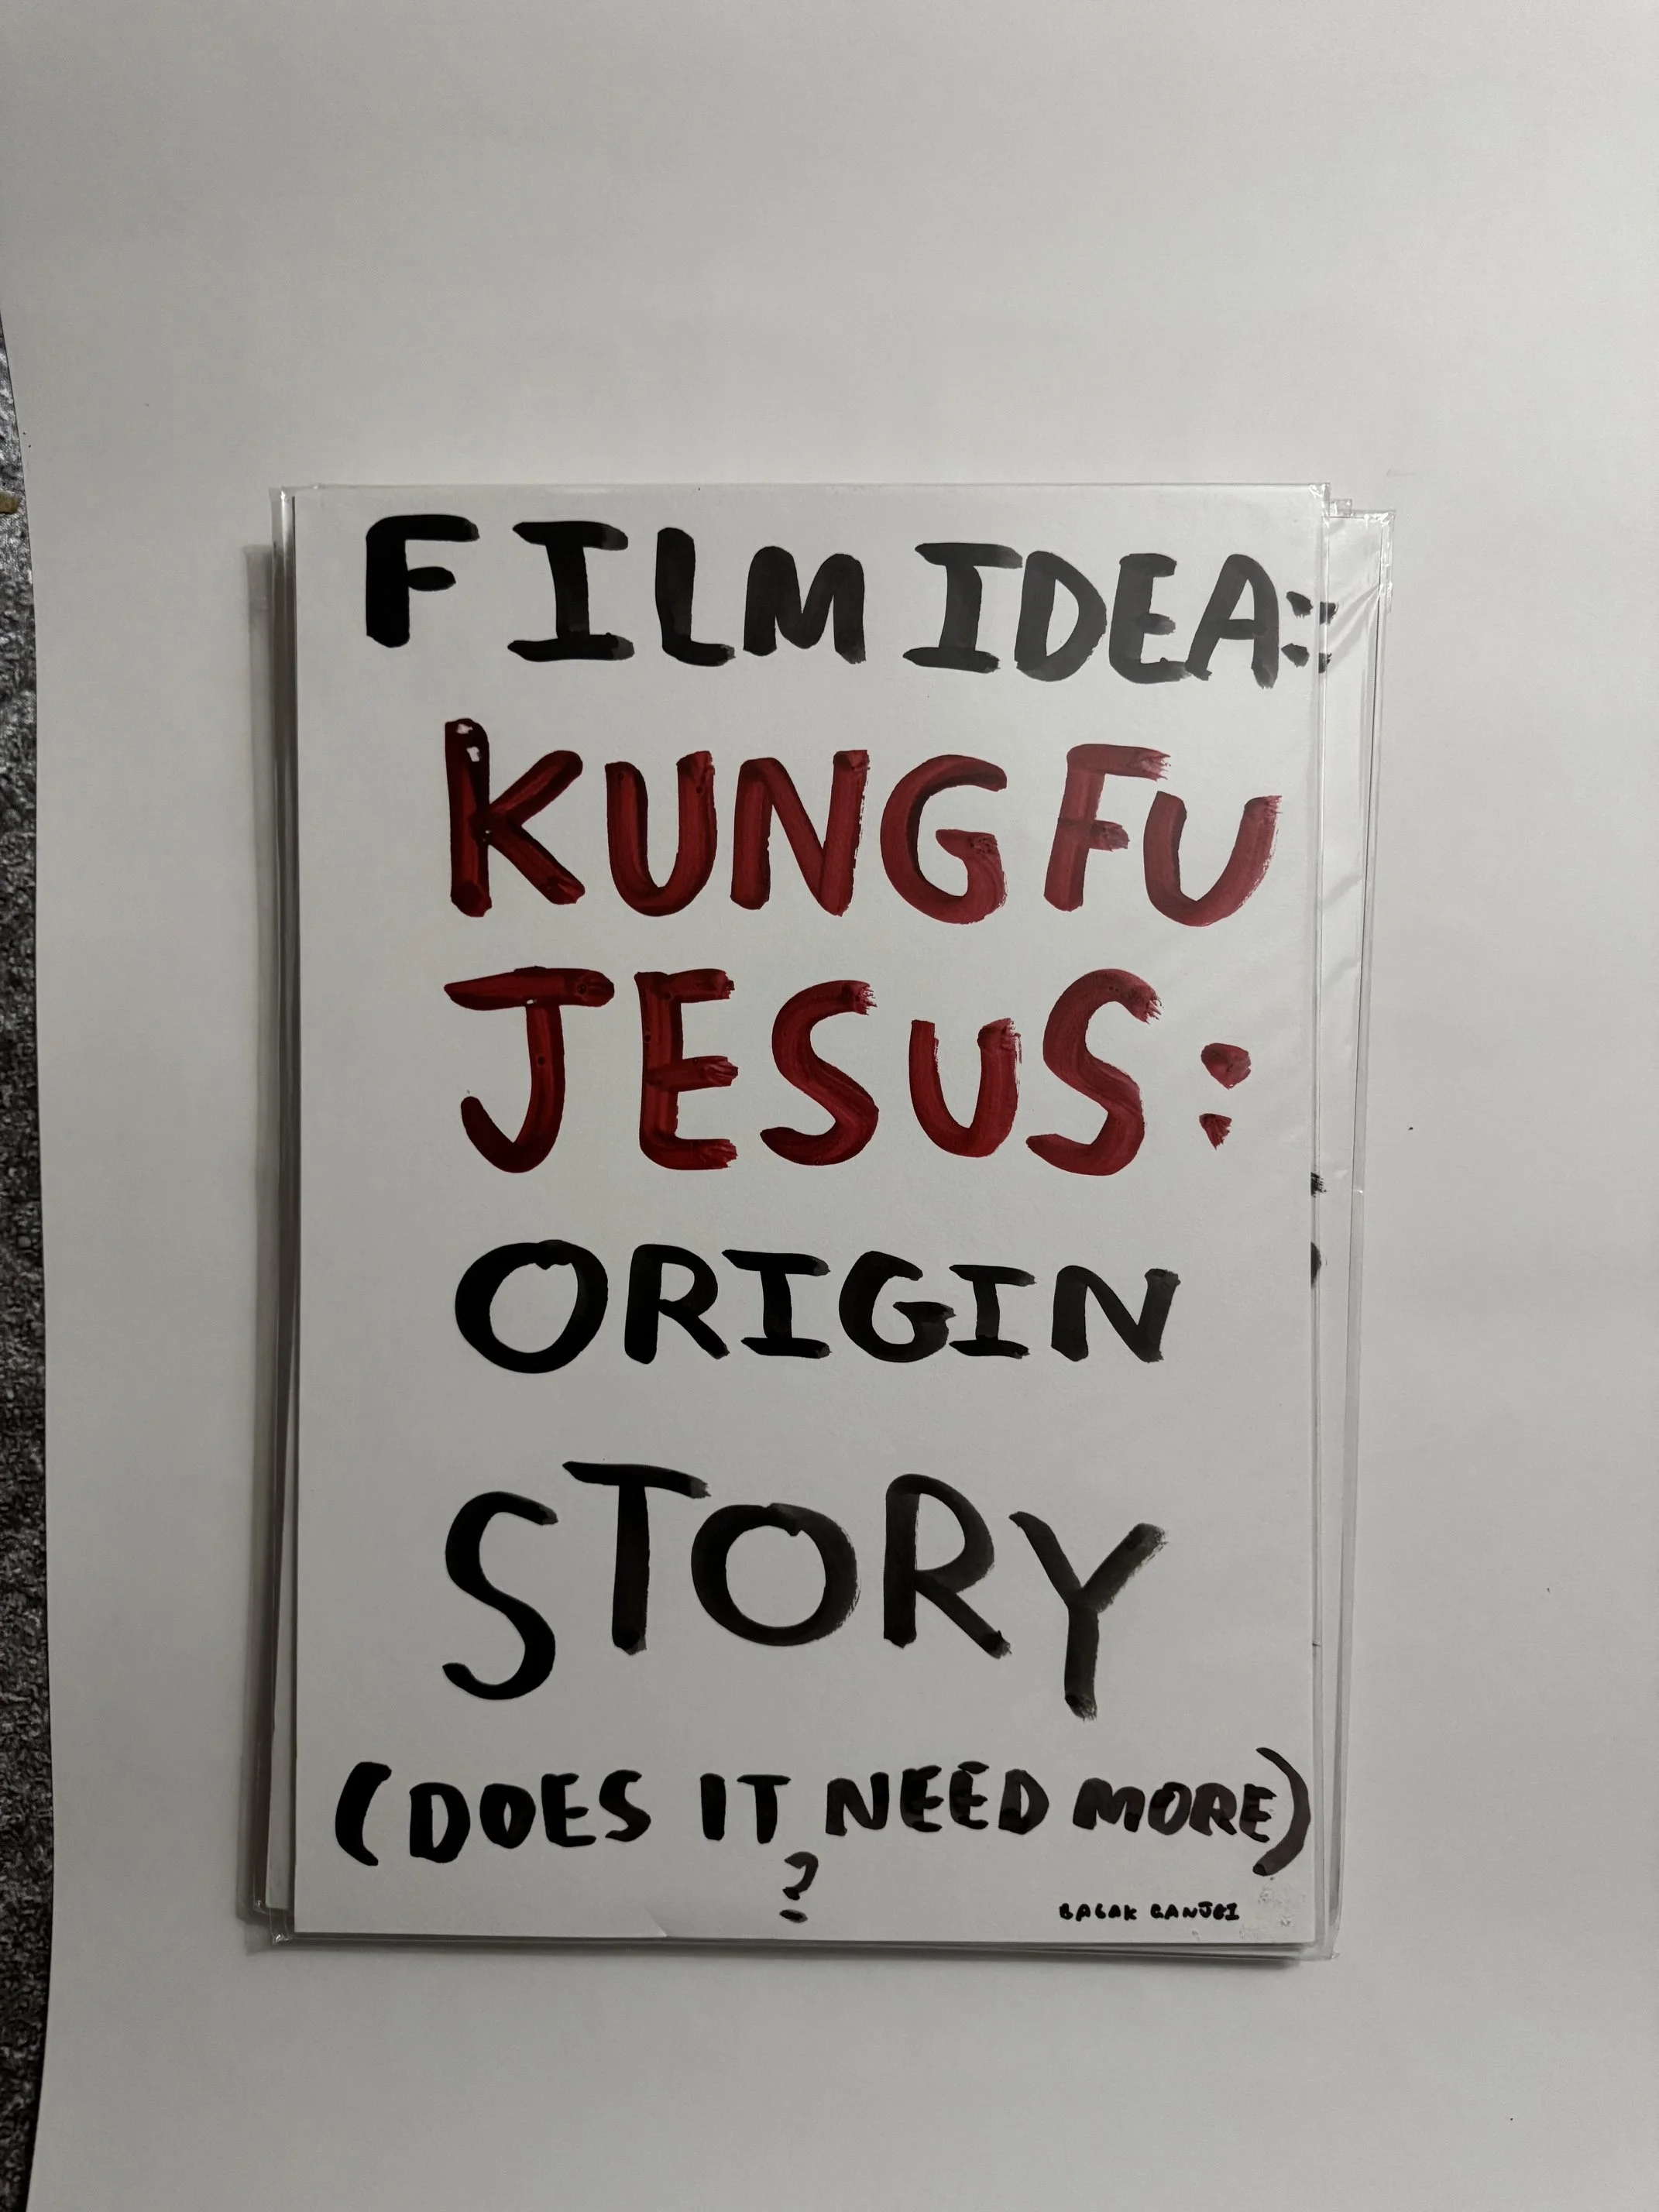 FILM IDEA:
KUNG FU
JESUS:
ORIGIN
STORY
(DOES IT NEED MORE)
?